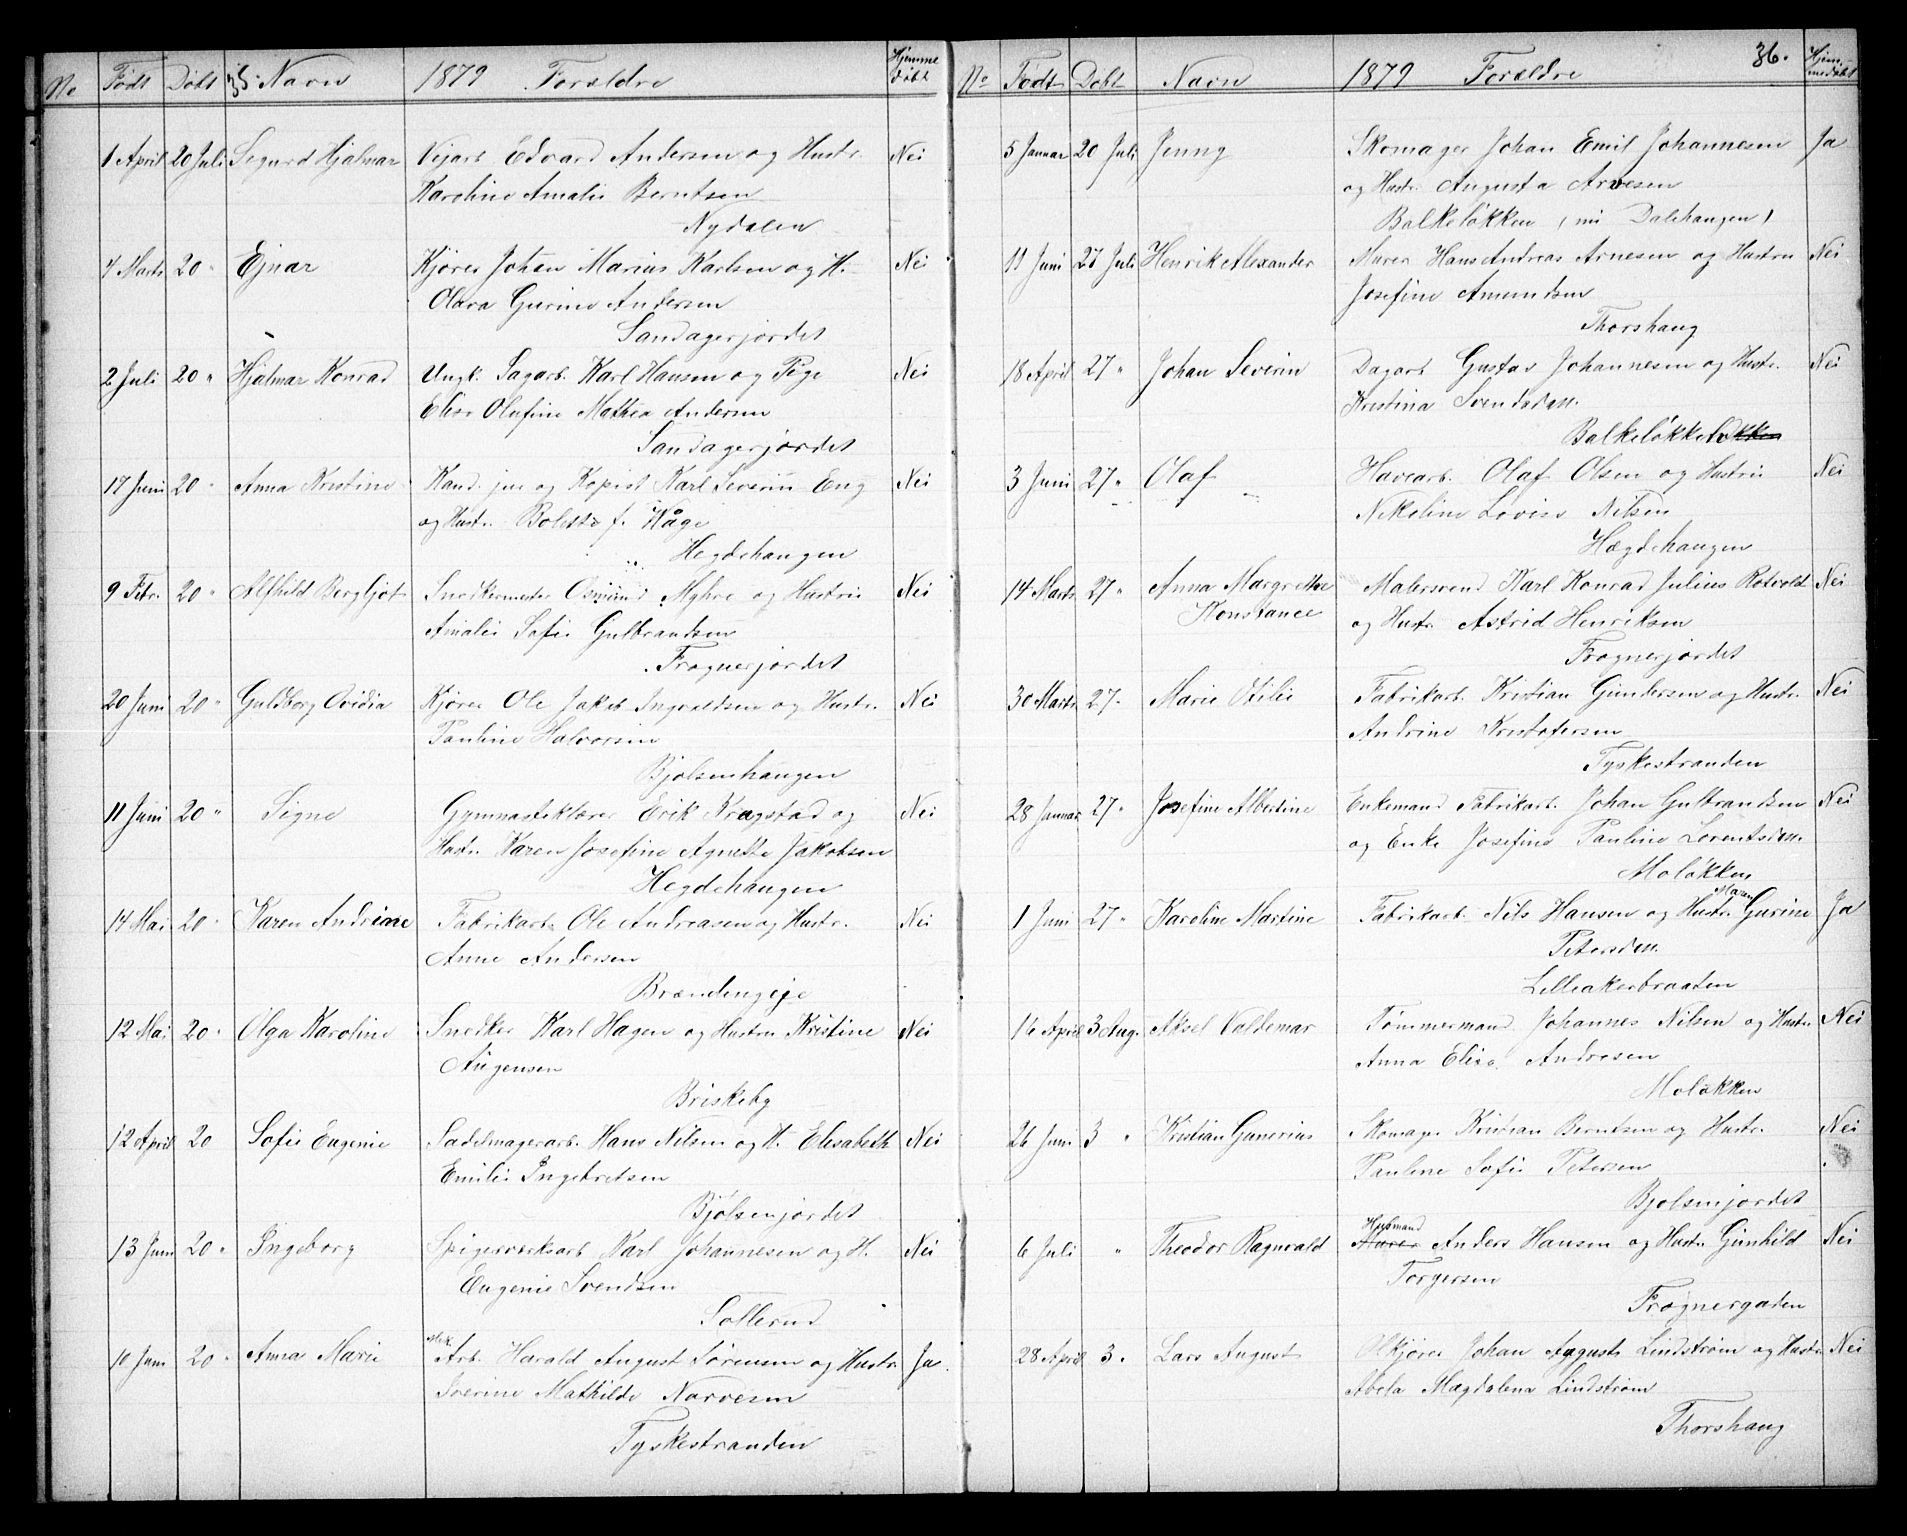 No Født Døbt Navn 1879 Forældre Hjemme døbt
1 April 20 Juli Sigurd Hjalmar Vejarb. Edvard Andersen og Hustr. Nei
Karoline Amalie Berntsen
Nydalen
4 Marts 20 " Ejnar Kjører Johan Marius Karlsen og H. Nei
Olava Gurine Andersen
Sandagerjordet
2 Juli 20 " Hjalmar Konrad Ungk. Sagarb. Karl Hansen og Pige Nei
Elise Olufine Mathea Andersen
Sandagerjordet
17 Juni 20 " Anna Kristine Kand. jur og Kopist Karl Severin Eng Nei
og Hustr. Bolette f. Håge
Hegdehaugen
9 Febr. 20 " Alfhild Bergljot Snedkermester Osmund Myhre og Hustru Nei
Amalie Sofie Gulbrandsen
Frognerjordet
20 Juni 20 " Guldborg Ovidia Kjører Ole Jakob Ingvaldsen og Hustr. Nei
Pauline Halvorsen
Bjølsenhaugen
11 Juni 20 " Signe Gymnastiklærer Erik Kragstad og Nei
Hustr. Karen Josefine Agnette Jakobsen
Hegdehaugen
14 Mai 20 " Karen Andrine Fabrikarb. Ole Andreasen og Hustr. Nei
Anne Andersen
Brændengeje
12 Mai 20 " Olga Karoline Snedker Karl Hagen og Hustru Kristine Nei
Augensen
Briskeby
12 April 20 Sofie Eugenie Sadelmagerarb. Hans Nilsen og H. Elisabeth Nei
Emilie Ingebretsen
Bjølsenjordet
13 Juni 20 " Ingeborg Spigerverksarb Karl Johannesen og H. Nei
Eugenie Svendsen
Sollerud
10 Juni 20 " Anna Marie Mek. Arb. Harald August Sørensen og Hustr. Ja.
Severine Mathilde Narvesen
Tyskestranden
36.
No Født Døbt Navn 1879 Forældre Hjemmedøbt
5 Januar 20 Juli Jenny Skomager Johan Emil Johannesen Ja
og Hustr. Augusta Arvesen
Balkeløkken (nu Dalehaugen)
11 Juni 27 Juli Henrik Alexander Murer Hans Andreas Arnesen og Hustru Nei
Josefine Amundsen
Thorshaug
18 April 27 " Johan Severin Dagarb. Gustav Johannesen og Hustr. Nei
Kristina Svendsdatt.
Balkeløkken
3 Juni 27 " Olaf Havearb. Olaf Olsen og Hustru Nei
Nikoline Lovise Nilsen
Hægdehaugen
14 Marts 27 " Anna Margrethe Konstance Malersvend Karl Konrad Julius Rotvold Nei
og Hustr. Astrid Henriksen
Frognerjordet
30 Marts 27 " Marie Otilie Fabrikarb. Kristian Gundersen og Hustr. Nei
Andrine Kristofersen
Tyskestranden
28 Januar 27 " Josefine Albertine Enkemand Fabrikarb. Johan Gulbrandsen Nei
og Enke Josefine Pauline Lorentsdatt.
Moløkken
1 Juni 27 " Karoline Martine Fabrikarb. Nils Hansen og Hustr. Maren Gurine Ja
Petersdatt.
Lilleakerbraaten
16 April 3 Aug. Aksel Valdemar Tømmermand Johannes Nilsen og Hustr. Nei
Anna Elise Andresen
Moløkken
26 Juni 3 " Kristian Gunerius Skomager Kristian Berntsen og Hustr. Nei
Pauline Sofie Petersen
Bjølsenjordet
6 Juli " Theodor Ragnvald Husmand Murer Anders Hansen og Hustr. Gunhild Nei
Torgersen
Frognergaden
28 April 3. Lars August Ølkjører Johan August Lindstrøm og Hustr. Nei
Abela Magdalena Lindstrøm
Thorshaug